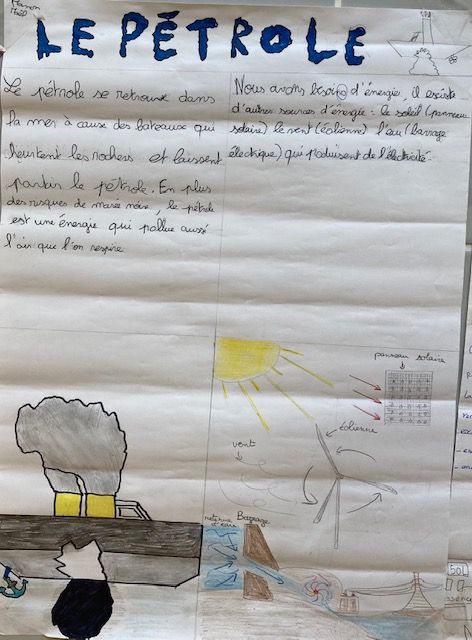 Manon
LE PÉTROLE
Le pétrole se retrouve dans
la mer à cause des bateaux qui
heurtent les rochers et laissent
partir le pétrole. En plus
des risques de marée noire, le pétrole
est une énergie qui pollue aussi
l'air que l'on respire
Nous avons besoin d'énergie, il existe
d'autres sources d'énergie : le soleil (panneau
solaire) le vent (éolienne) l'eau (barrage
électrique) qui produisent de l'électricité.
panneau solaire
éolienne
vent
retenue d'eau
Barrage